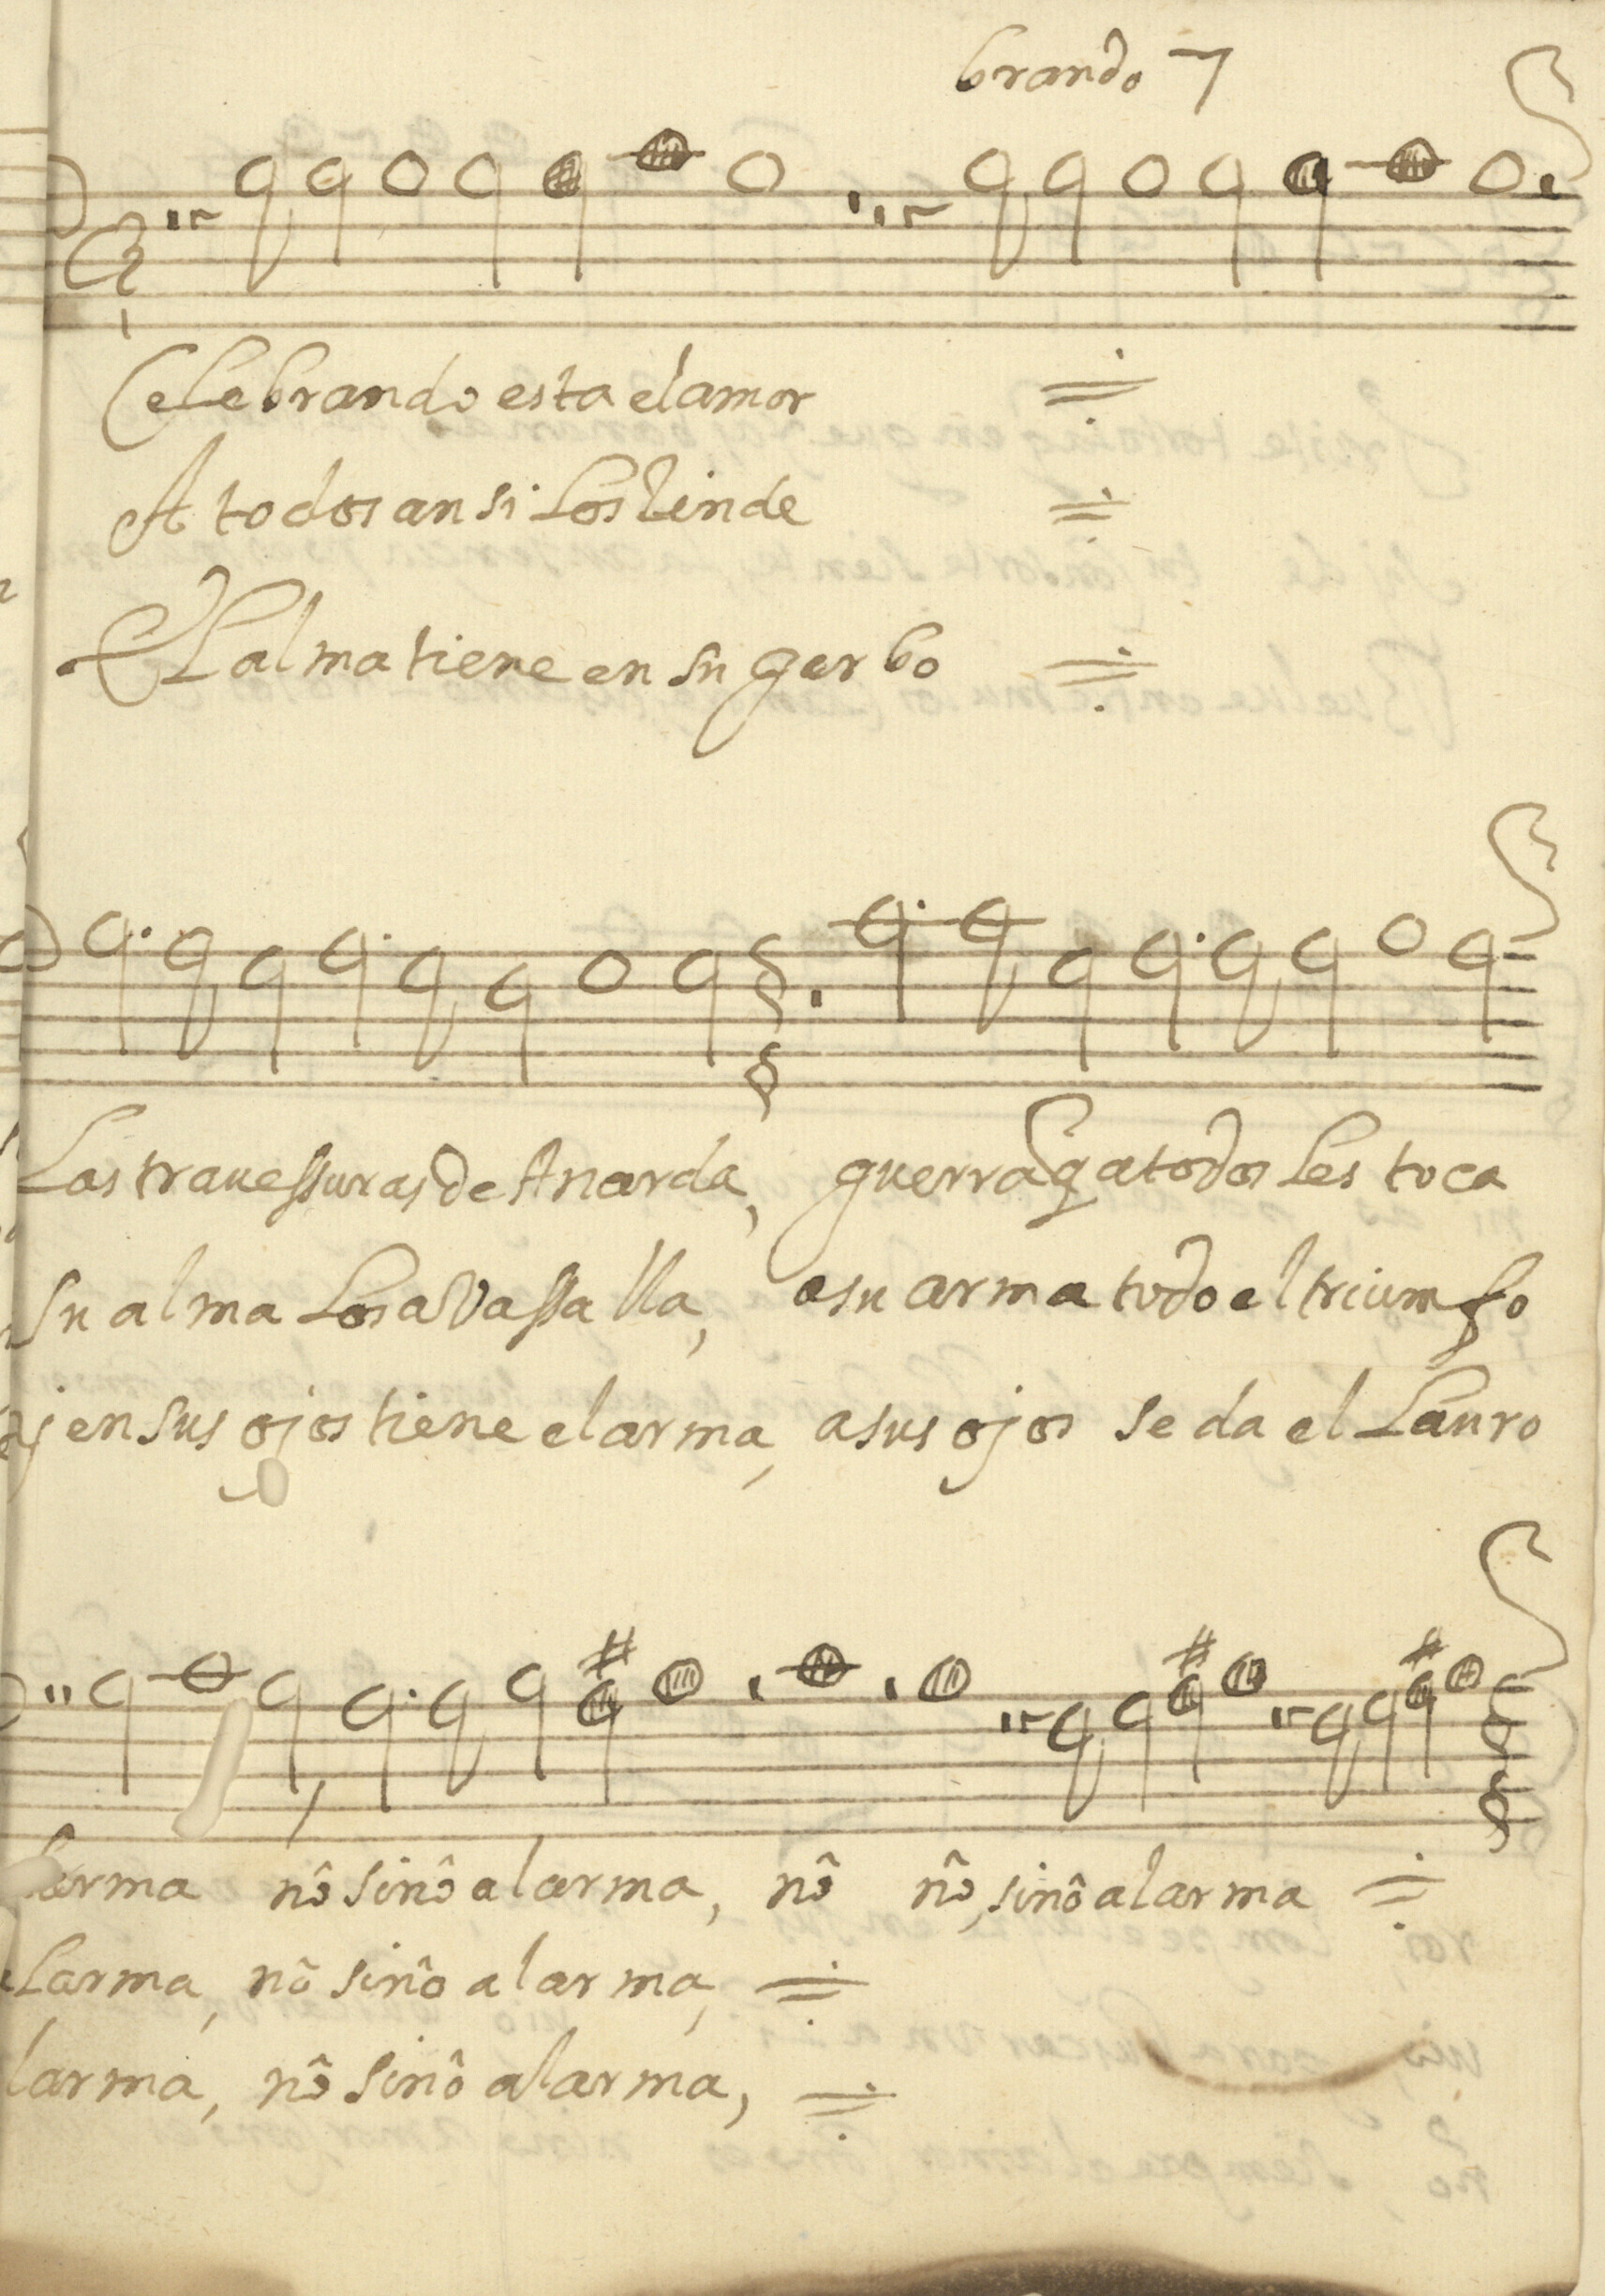 brando 7
Celebrando esta el amor
A todos ansi los rinde
El alma tiene en su garbo
Las trauessuras de Anarda, guerra q̃ a todos les toca
su alma los avassalla, a su arma todo el triumfo
en sus ojos tiene el arma, a sus ojos se da el Lauro
larma nô sinô alarma, nô nô, sinô alarma
larma, nô sinô alarma,
larma, nô sinô alarma,